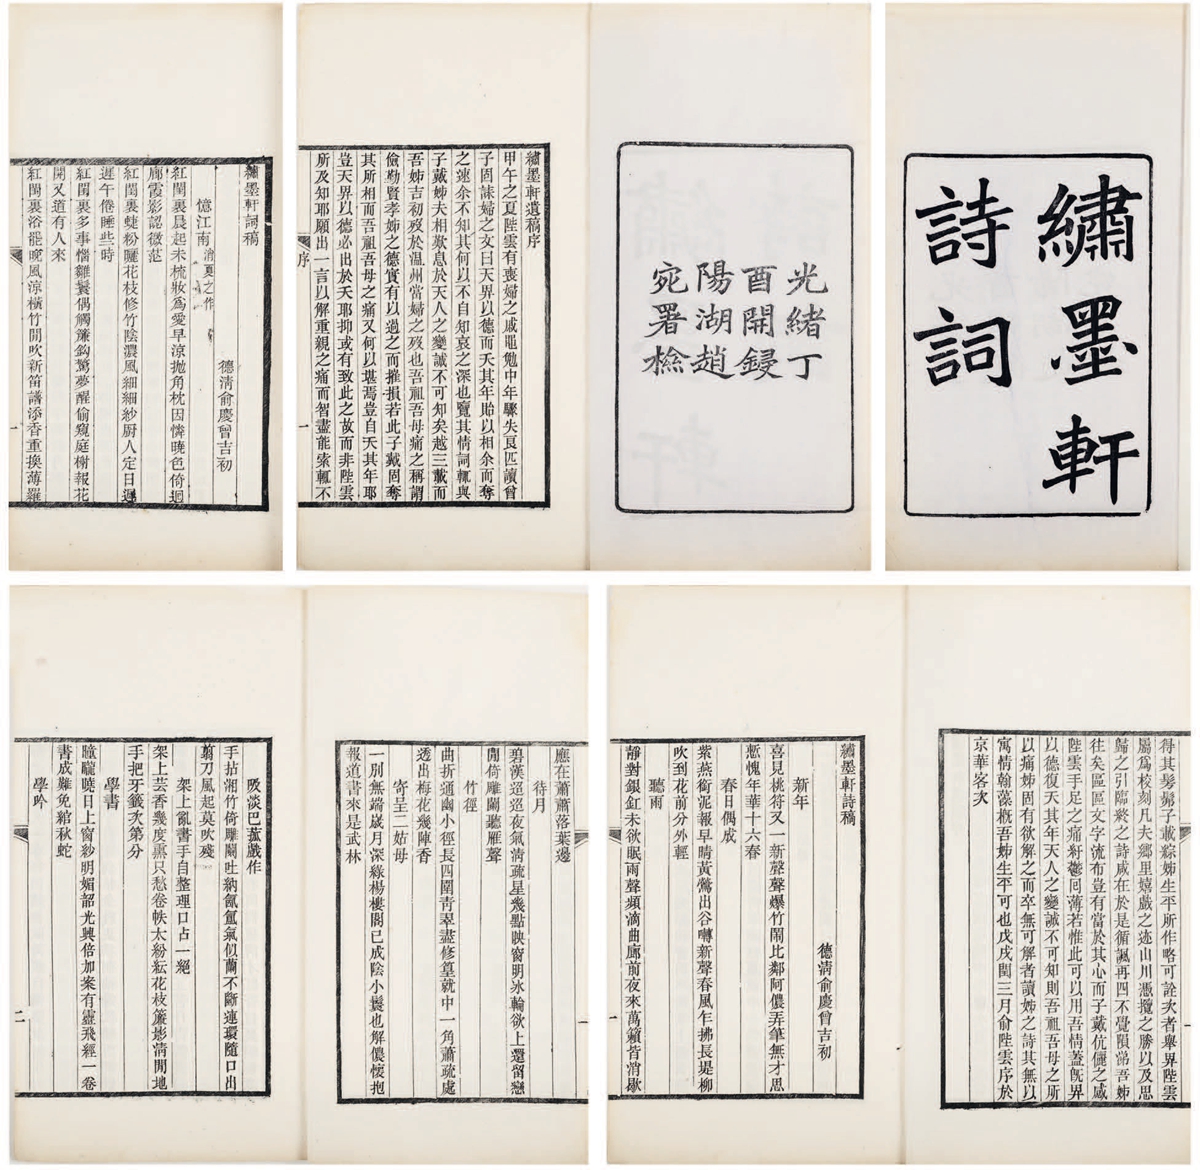 繡墨軒
詩詞
光緒丁
酉開鋟
陽湖趙
宛署檢
繡墨軒遺稿序
甲午之夏陛雲有喪婦之戚黽勉中年驟失良匹讀曾
子固誄婦之文曰天畀以德而夭其年貽以相余而奪
之速余不知其何以不自知哀之深也覽其情詞輒與
子戴姊夫相歎息於天人之變誠不可知矣越三載而
吾姊吉初歿於温州當婦之歿也吾祖吾母痛之稱謂
儉勤賢孝姊之德實有以過之而摧損若此子戴固奪
其所相而吾祖吾母之痛又何以堪焉豈自夭其年耶
豈天畀以德必出於夭耶抑或有致此之故而非陛雲
所及知耶願出一言以解重親之痛而智盡能索輒不
序
一
繡墨軒詞稿
德清俞慶曾吉初
憶江南 消夏之作
紅閨裏晨起未梳妝爲愛早涼拋角枕因憐曉色倚迴
廊霞影認微茫
紅閨裏蜨粉曬花枝修竹陰濃風細細紗厨人定日遲
遲午倦睡些時
紅閨裏多事惱雛鬟偶觸簾鈎驚夢醒偷窺庭榭報花
開又道有人來
紅閨裏浴罷晚風涼橫竹閒吹新笛譜添香重換薄羅
一
得其髣髴子戴綜姊生平所作略可詮次者舉畀陛雲
屬爲校刻凡夫鄉里嬉戲之迹山川憑攬之勝以及思
歸之引臨終之詩咸在於是循諷再四不覺隕涕吾姊
往矣區區文字流布豈有當於其心而子戴伉儷之感
陛雲手足之痛紆鬱囘薄若惟此可以用吾情蓋既畀
以德復夭其年天人之變誠不可知則吾祖吾母之所
以痛姊固有欲解之而卒無可解者讀姊之詩其無以
寓情翰藻概吾姊生平可也戊戌閏三月俞陛雲序於
京華客次
繡墨軒詩稿
德清俞慶曾吉初
新年
喜見桃符又一新聲聲爆竹鬧比鄰阿儂弄筆無才思
慙愧年華十六春
春日偶成
紫燕銜泥報早晴黃鶯出谷囀新聲春風乍拂長堤柳
吹到花前分外輕
聽雨
靜對銀釭未欲眠雨聲頻滴曲廊前夜來萬籟皆消歇
一
應在蕭蕭落葉邊
待月
碧漢迢迢夜氣淸疏星幾點映窗明冰輪欲上還留戀
閒倚雕闌聽雁聲
竹徑
曲折通幽小徑長四圍青翠盡修篁就中一角蕭疏處
透出梅花幾陣香
寄呈二姑母
一別無端歲月深綠楊樓閣已成陰小鬟也解儂懷抱
報道書來是武林
吸淡巴菰戲作
手拈湘竹倚雕闌吐納氤氳氣似蘭不斷連環隨口出
翦刀風起莫吹殘
架上亂書手自整理口占一絕
架上芸香幾度熏只愁卷帙太紛紜花枝簾影清閒地
手把牙籤次第分
學書
曈曨曉日上窗紗明媚韶光興倍加案有靈飛經一卷
書成難免綰秋蛇
學吟
二